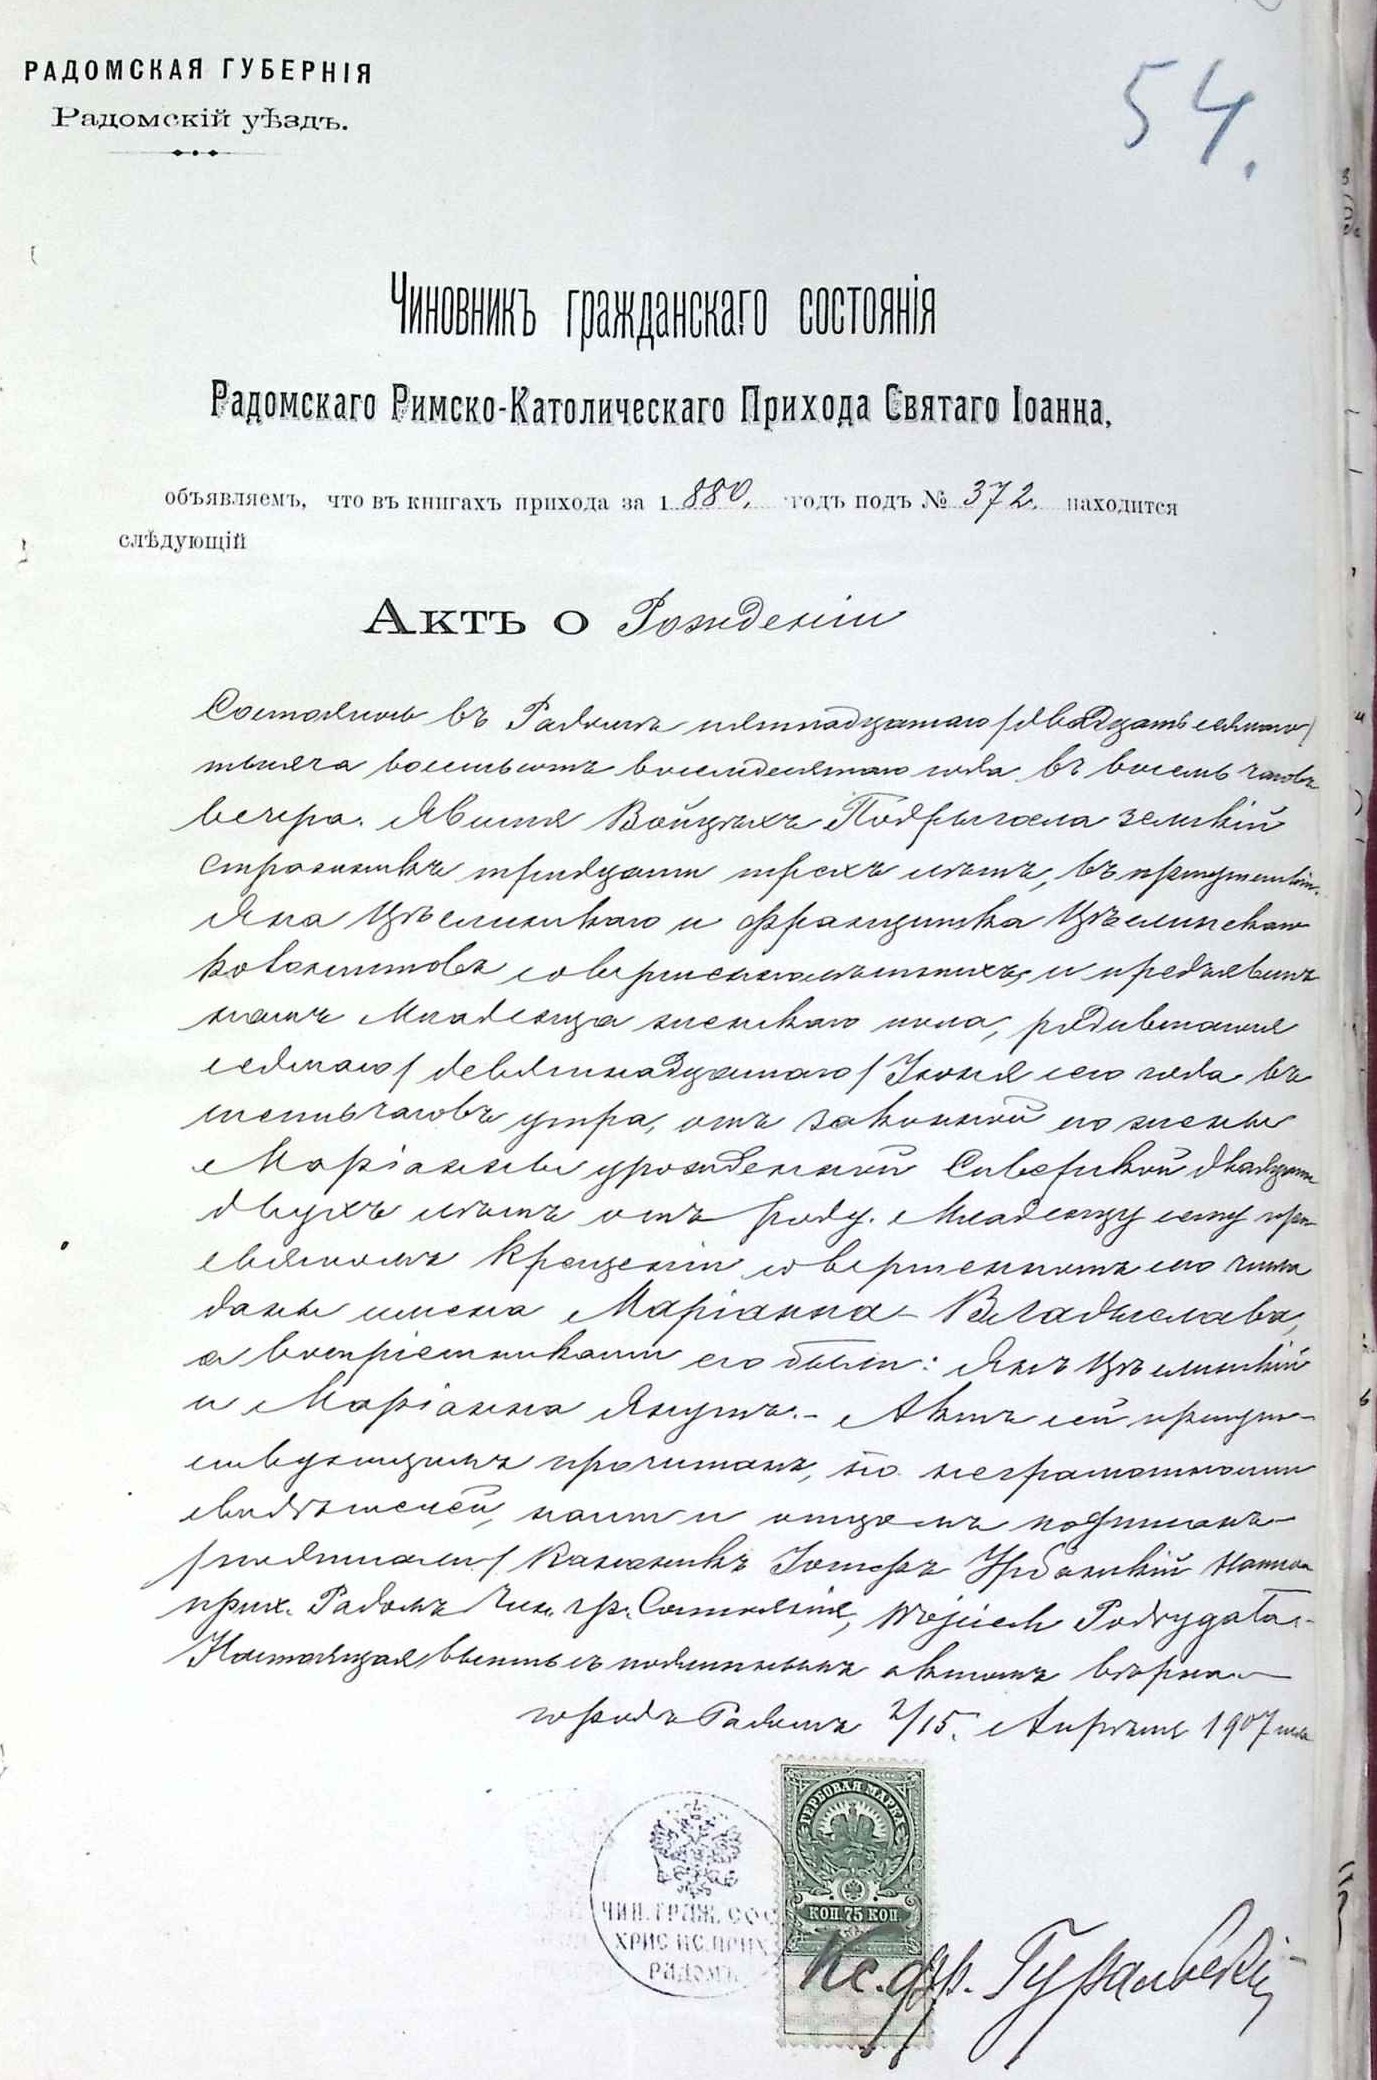 РАДОМСКАЯ ГУБЕРНІЯ
Радомскій уѣздъ.
54.
Чиновникъ гражданскаго состоянія
Радомскаго Римско-Католическаго Прихода Святаго Іоанна,
объявляемъ, что въ книгахъ прихода за 1880, годъ подъ № 372 находится
слѣдующій
Актъ о Рожденіи
Состоялось въ Радомѣ пятнадцатаго /двадцать седьмого/
тысяча восемьсотъ восемдесятаго года въ восемь часовъ
вечера. Явился Войцѣхъ Подрыгала земскій
стражникъ тридцати трехъ лѣтъ, въ присутствіи
Яна Цѣслинскаго и Францишка Цѣслинскаго
совершеннолѣтнихъ, и предъявилъ
намъ Младенца женскаго пола, родившагося
седьмаго /девятнадцатаго/ Іюня сего года въ
часовъ утра, отъ законной его жены
Маріанны урожденной двадцати
двухъ лѣтъ отъ роду. Младенцу сему при
святомъ Крещеніи совершенномъ сего числа
даны имена Маріанна-Владыслава,
а воспріемниками его были: Янъ Цѣслинскій
и Маріанна Янусъ.- Актъ сей присут-
ствующимъ прочитанъ, по неграмотности
свидѣтелей, нами и отцемъ подписанъ-
/подписали/ Каноникъ Іосифъ Урбанскій Настоя.
прих. Радомъ Чин. гр. Состоянія, Wojciech Podrygała.-
Настоящая выпись съ подлиннымъ актомъ вѣрна
городъ Радомъ 2/15. Апрѣля 1907 года
ГЕРБОВАЯ МАРКА
КОП. 75 КОП.
ЧИН. ГРАЖ. СОС
ХРИС ИС. ПРИХ
РАДОМЪ
Кс. фр. Гуральскій